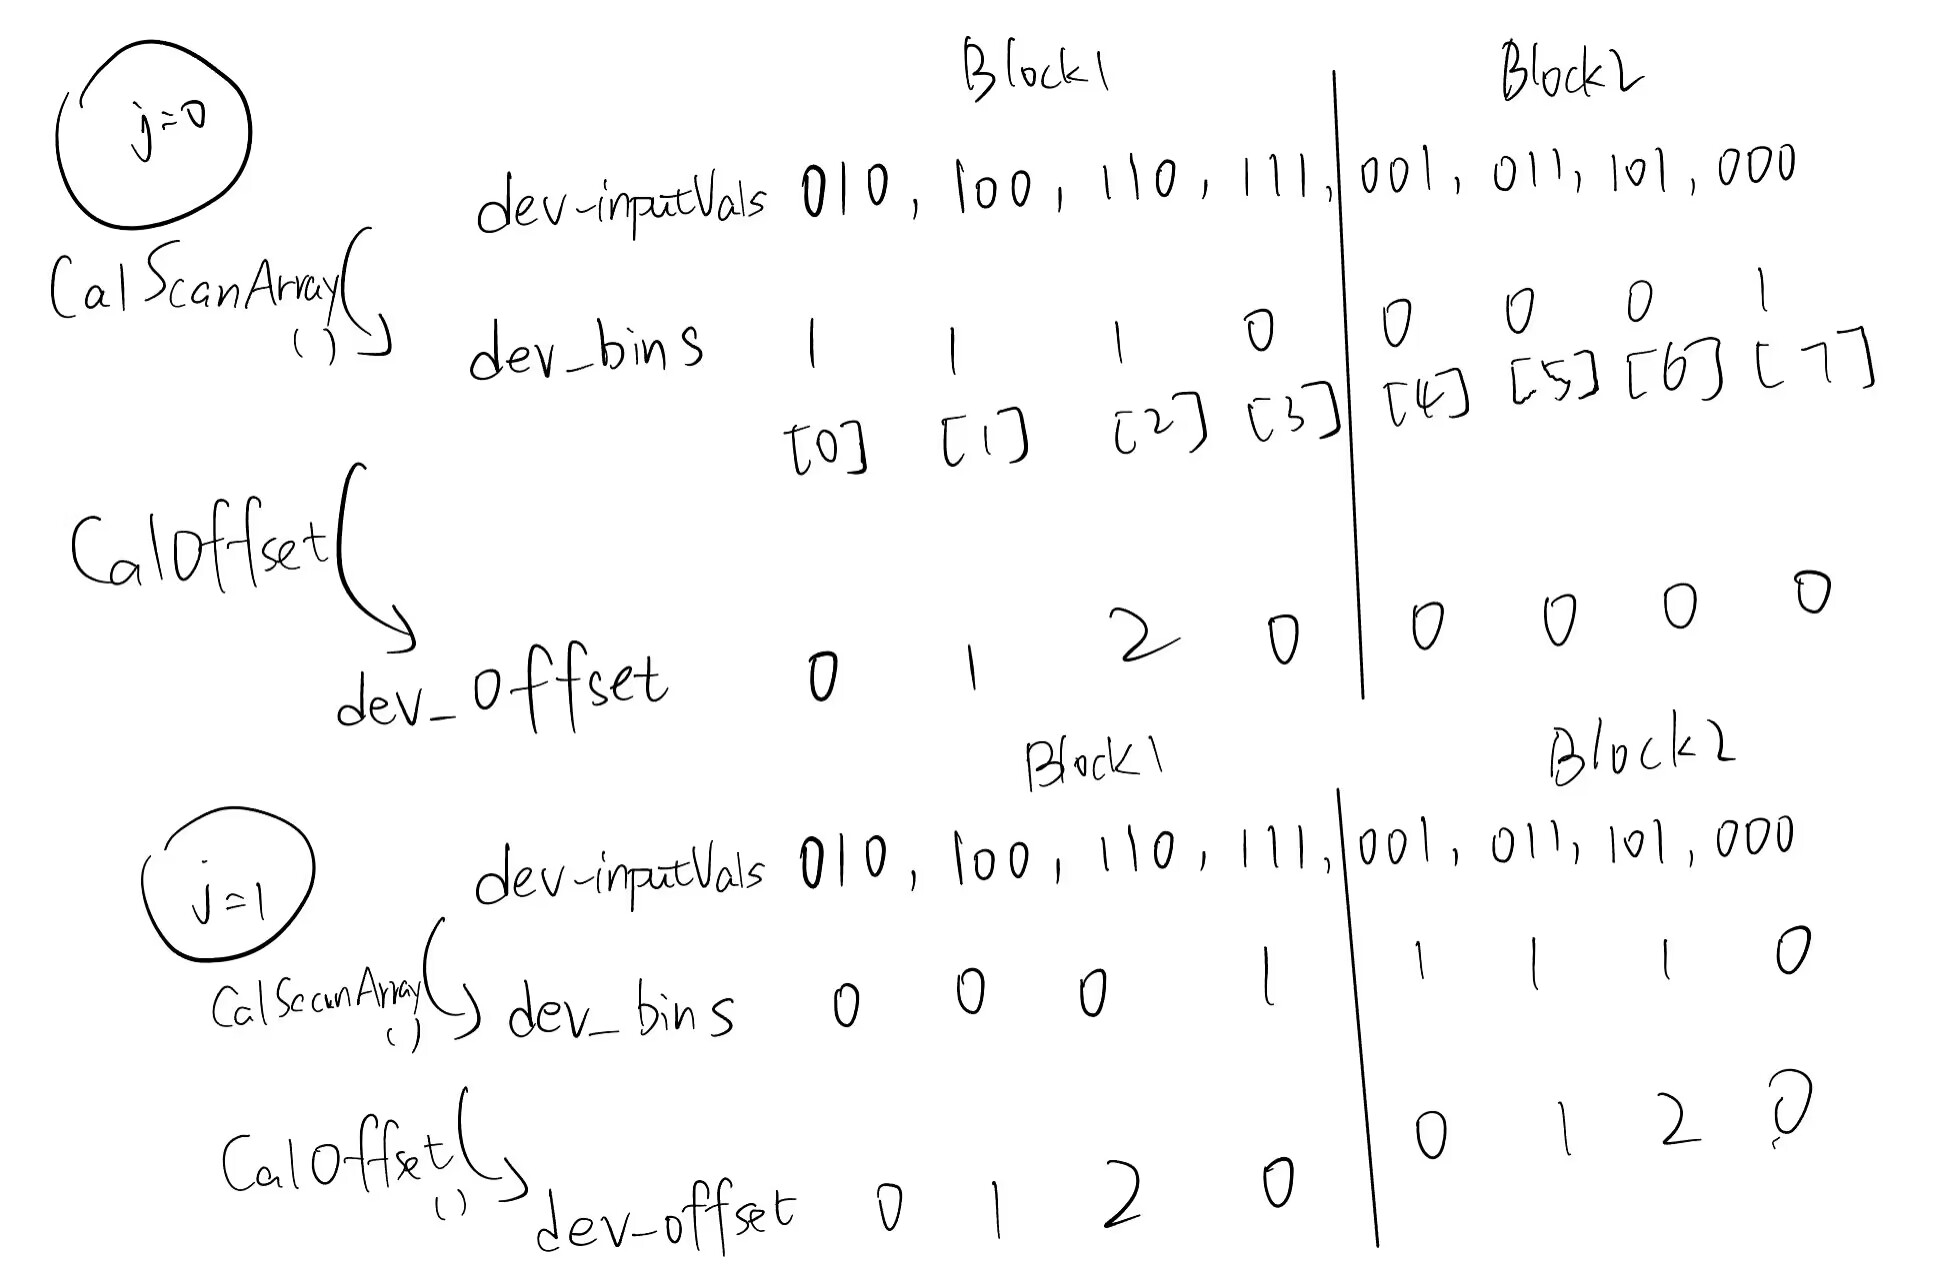 j=0
Block1 Block2
dev-inputVals 010, 100, 110, 111, 001, 011, 101, 000
CalScanArray
()
dev_bins 1 1 1 0 0 0 0 1
[0] [1] [2] [3] [4] [5] [6] [7]
CalOffset
dev_offset 0 1 2 0 0 0 0 0
Block1 Block2
j=1
dev-inputVals 010, 100, 110, 111, 001, 011, 101, 000
CalScanArray
()
dev_bins 0 0 0 1 1 1 1 0
CalOffset
()
dev-offset 0 1 2 0 0 1 2 0